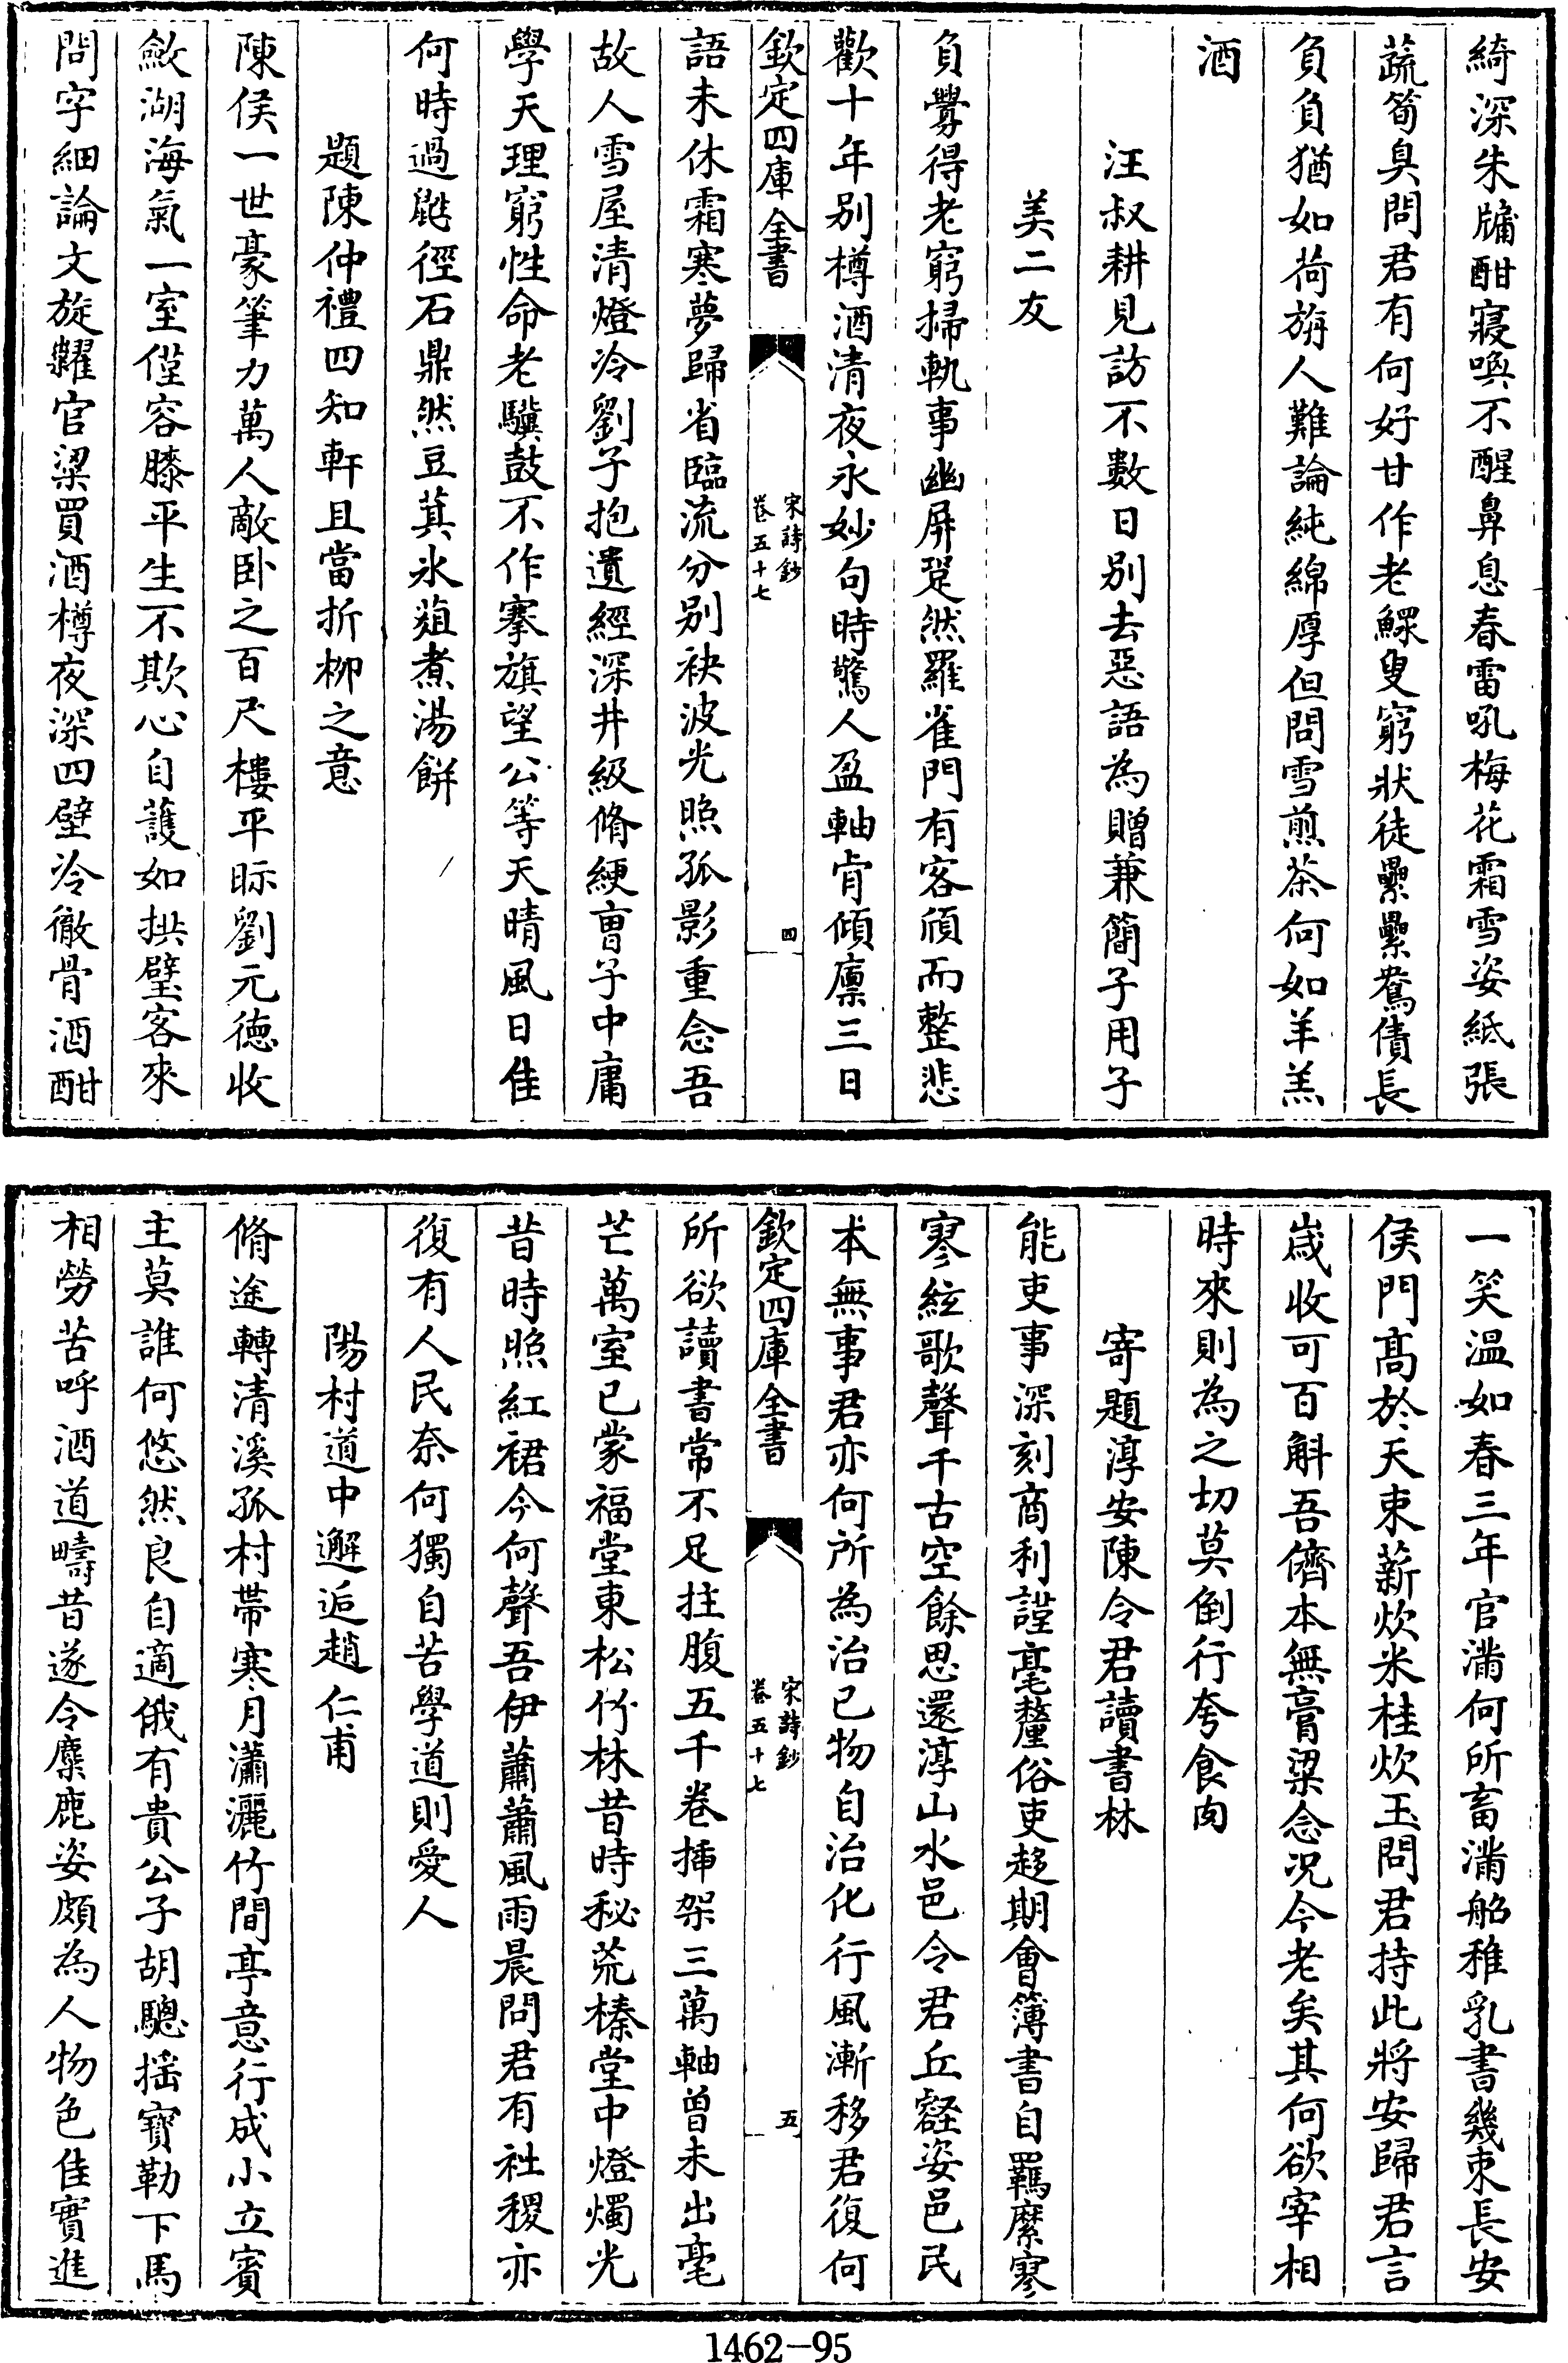 綺深朱牖酣寢喚不醒鼻息春雷吼梅花霜雪姿紙張
蔬筍臭問君有何好甘作老鰥叟窮狀徒纍纍鴛債長
負負猶如荷旃人難論純綿厚但問雪煎茶何如羊羔
酒
汪叔耕見訪不數日別去惡語為贈兼簡子用子
美二友
負釁得老窮掃軌事幽屏跫然羅雀門有客頎而整悲
歡十年别樽酒清夜永妙句時驚人盈軸肯傾廪三日
欽定四庫全書
宋詩鈔
卷五十七
四
語未休霜寒夢歸省臨流分别袂波光照孤影重念吾
故人雪屋清燈冷劉子抱遺經深井級脩綆曺子中庸
學天理窮性命老驥鼓不作搴旗望公等天晴風日佳
何時過毑徑石鼎然豆萁氷葅煮湯餅
題陳仲禮四知軒且當折柳之意
陳侯一世豪筆力萬人敵卧之百尺樓平眎劉元德收
斂湖海氣一室僅容膝平生不欺心自護如拱璧客來
問字細論文旋糶官粱買酒樽夜深四壁冷徹骨酒酣
一笑温如春三年官滿何所畜滿船稚乳書幾束長安
侯門髙於天束薪炊米桂炊玉問君持此將安歸君言
歲收可百斛吾儕本無膏粱念況今老矣其何欲宰相
時來則為之切莫倒行夸食肉
寄題淳安陳令君讀書林
能吏事深刻商利證毫釐俗吏趍期會簿書自羈縻寥
寥絃歌聲千古空餘思還淳山水邑令君丘壑姿邑民
本無事君亦何所為治已物自治化行風漸移君復何
欽定四庫全書
宋詩鈔
卷五十七
五
所欲讀書常不足拄腹五千卷揷架三萬軸曽未出毫
芒萬室已蒙福堂東松竹林昔時秘荒榛堂中燈燭光
昔時照紅裙今何聲吾伊蕭蕭風雨晨問君有社稷亦
復有人民奈何獨自苦學道則愛人
陽村道中邂逅趙仁甫
脩途轉清溪孤村帶寒月瀟灑竹間亭意行成小立賓
主莫誰何悠然良自適俄有貴公子胡驄揺寶勒下馬
相勞苦呼酒道疇昔遂令麋鹿姿頗為人物色佳實進
1462-95